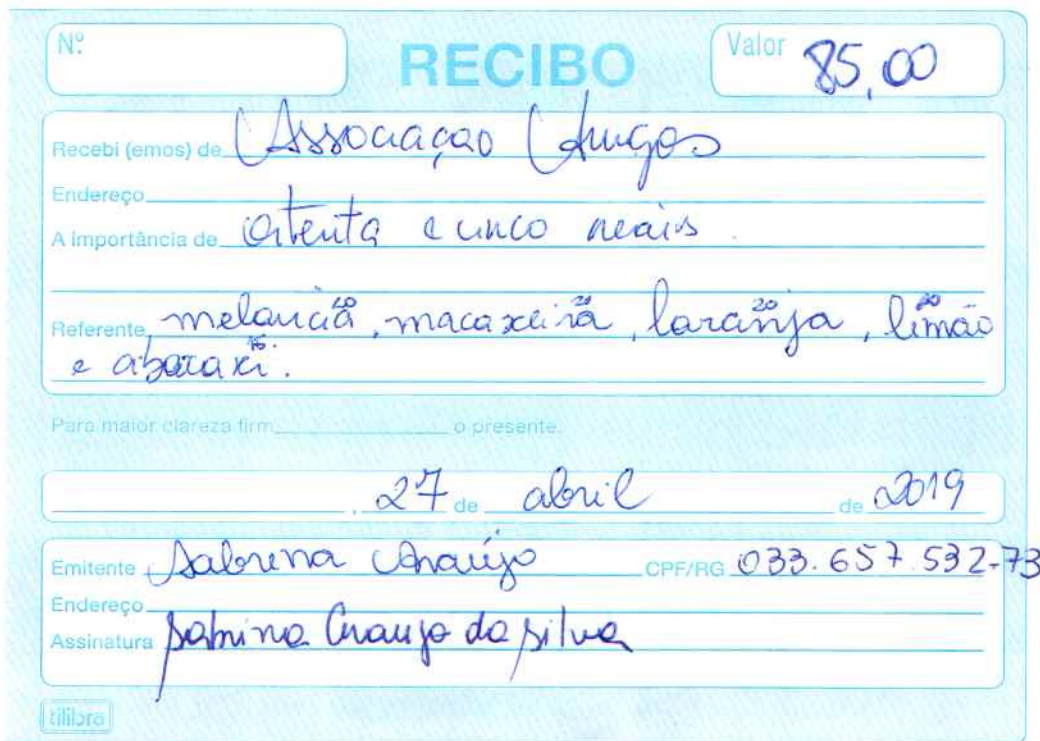 Nº RECIBO Valor 85,00
Recebi (emos) de Associaçao Amigos
Endereço
A importância de oitenta e cinco reais.
20 20 20
Referente melancia, macaxeira, laranja, limão
15
e abacaxi.
Para maior clareza firm o presente.
, 27 de abril de 2019
Emitente Sabrina Araújo CPF/RG 033.657.532-73
Endereço
Assinatura Sabrina Araujo da Silva
tilibra